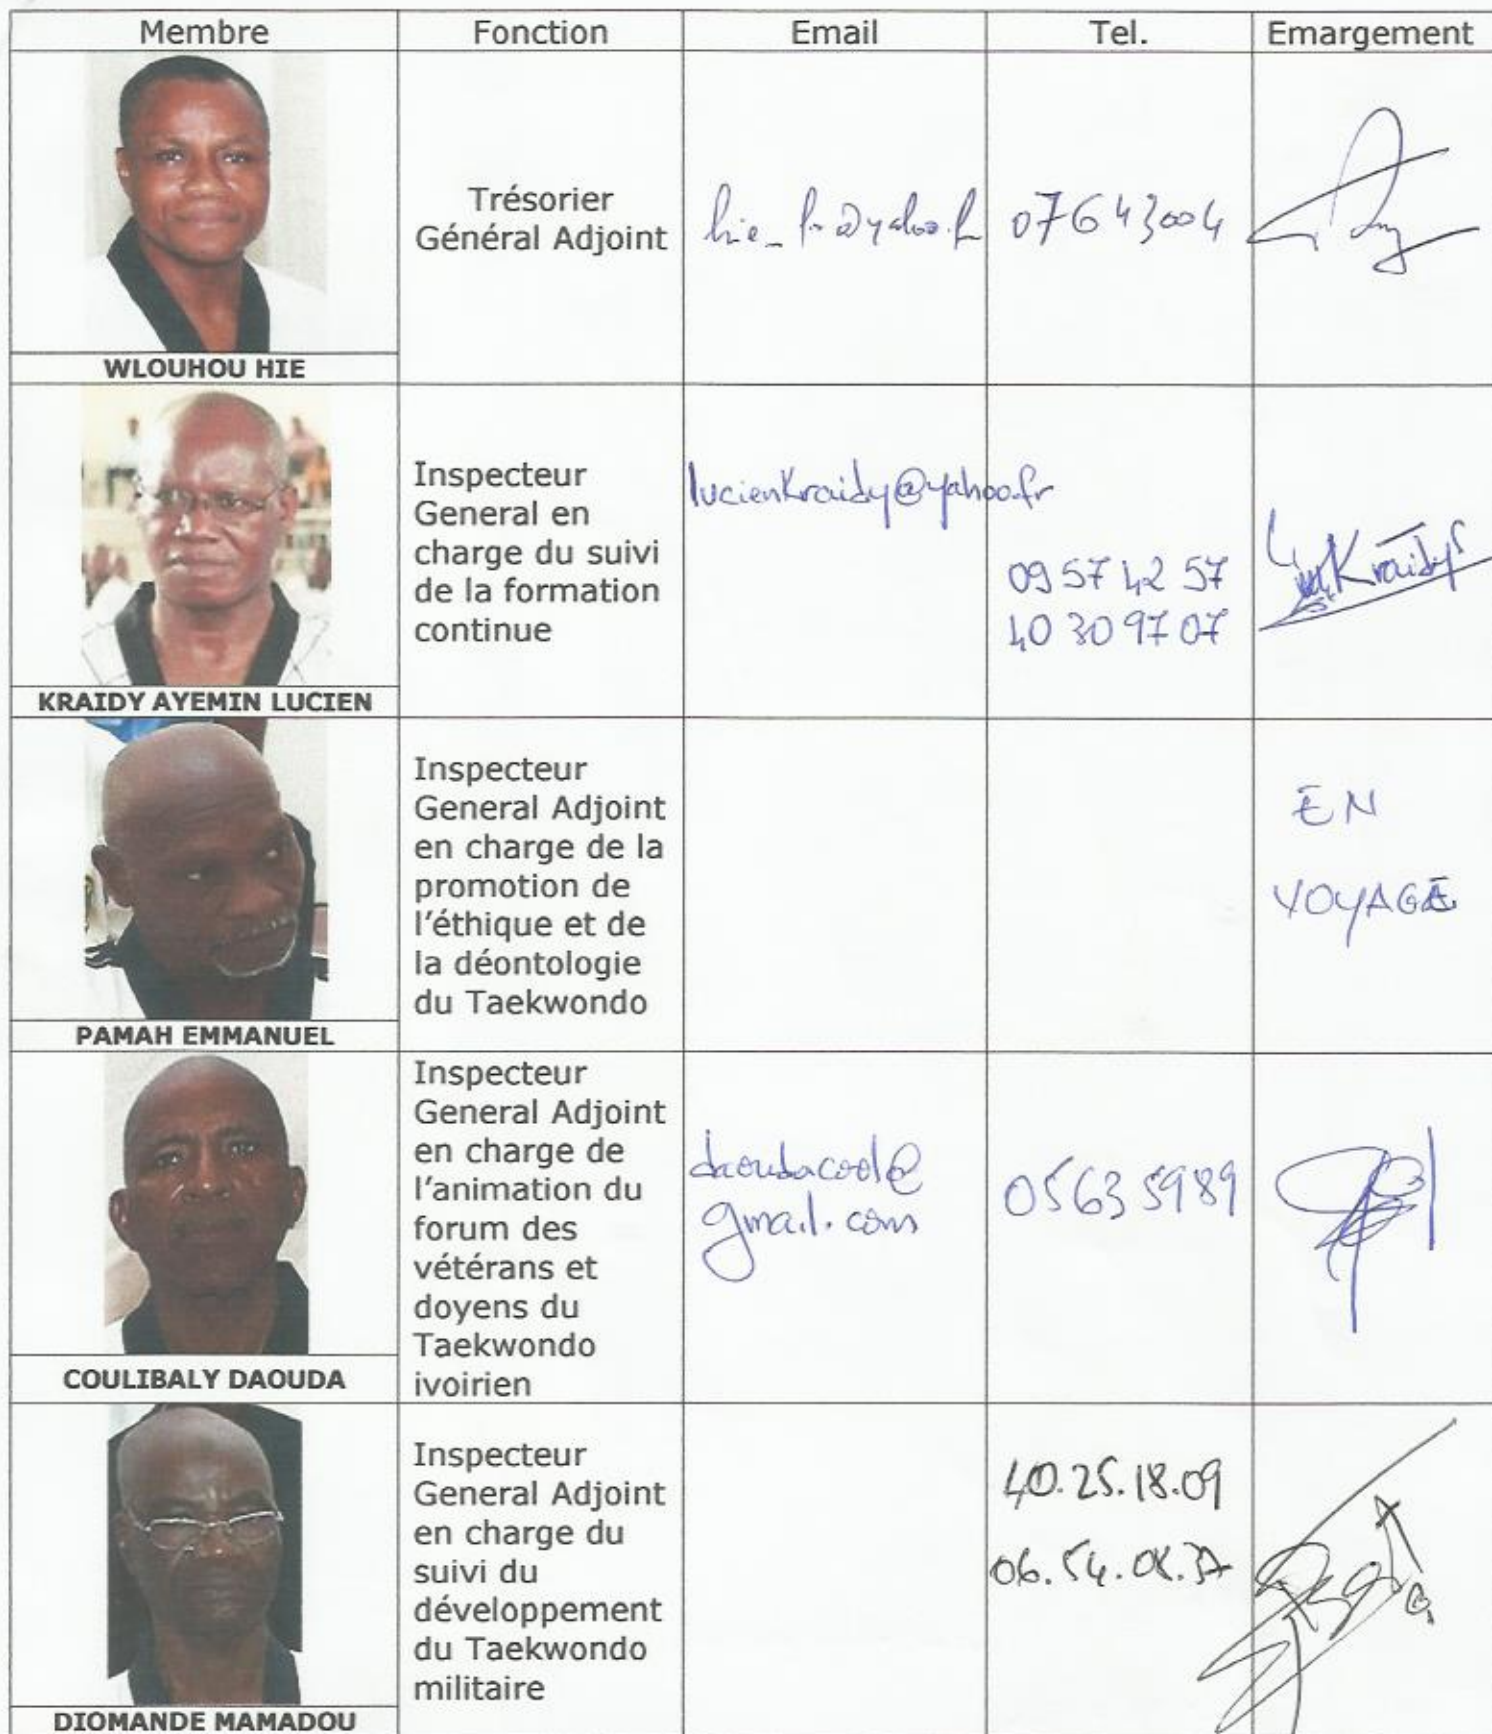 Membre Fonction Email Tel. Emargement
Trésorier
Général Adjoint
07643004
WLOUHOU HIE
Inspecteur
General en
charge du suivi
de la formation
continue
lucienkraidy@yahoo.fr
09 57 42 57
40 30 97 07
Kraidy
KRAIDY AYEMIN LUCIEN
Inspecteur
General Adjoint
en charge de la
promotion de
l'éthique et de
la déontologie
du Taekwondo
EN
VOYAGE
PAMAH EMMANUEL
Inspecteur
General Adjoint
en charge de
l'animation du
forum des
vétérans et
doyens du
Taekwondo
ivoirien
daoudacool@
gmail.com
05635989
COULIBALY DAOUDA
Inspecteur
General Adjoint
en charge du
suivi du
développement
du Taekwondo
militaire
40.25.18.09
DIOMANDE MAMADOU